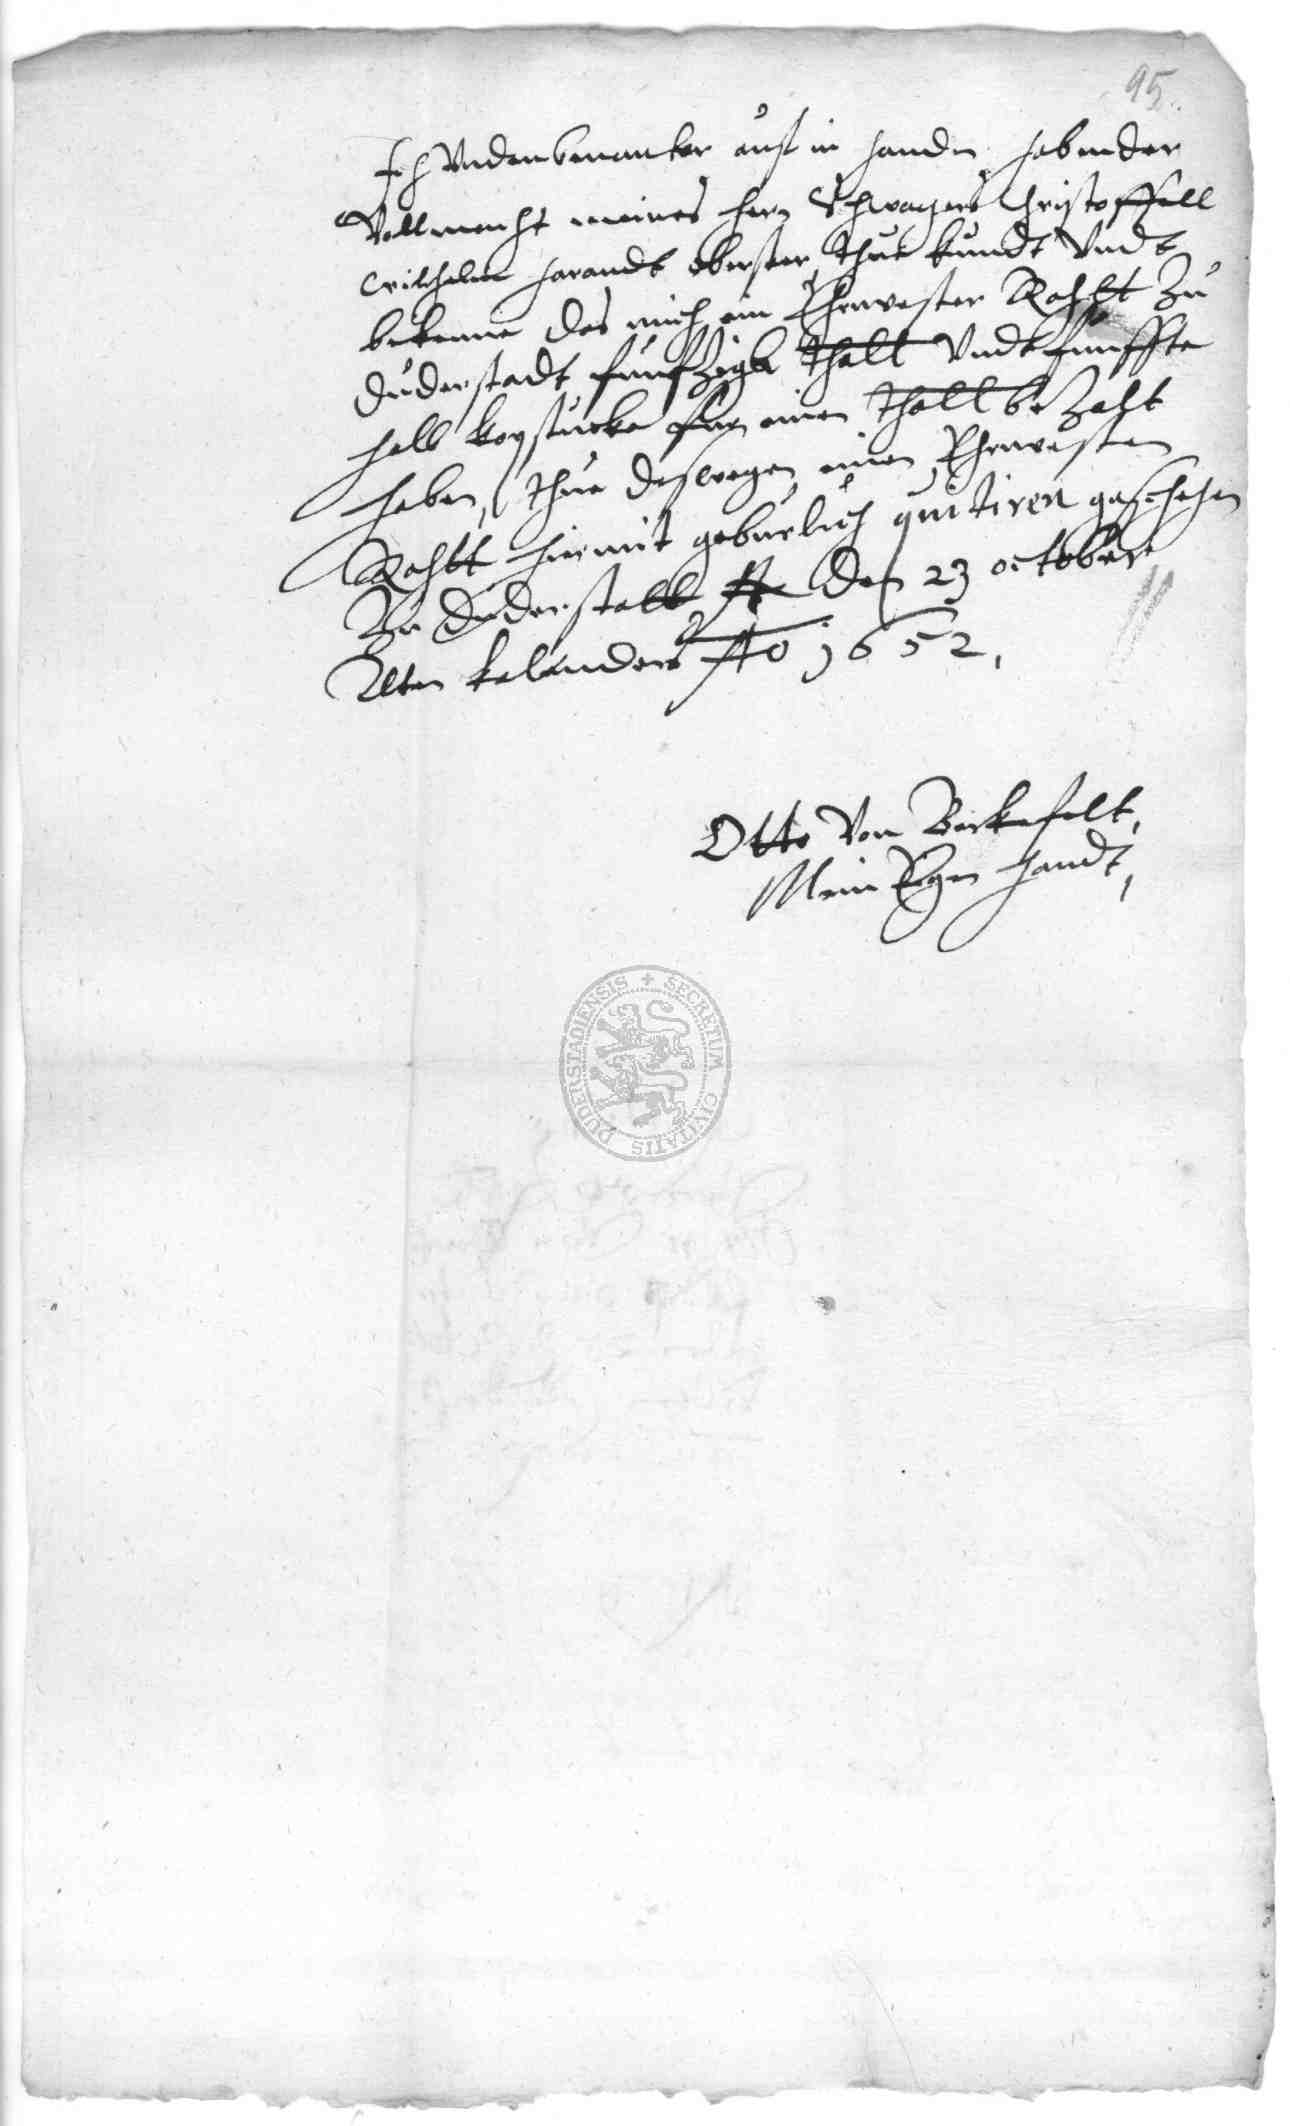 95.
Ich Vndenbenanter auß in handen habender
Vollmacht meines hern Schwagers Christoffell
Wilhelm harandt oberster, thue kundt Vndt
bekenne das mich ein Ehrnvester Rahtt Zu
Duderstadt funfzigk thall Vndt funffte
halb kopstucke fur einen thall bezahlt
haben, thue deswegen einen Ehrnvesten
Rahtt hiermit geburlich quitiren geschehen
Zu Duderstatt den 23 octobris
Alten kalenders Ao 1652,
Otto Von Bockefelt,
Mein Eigen handt,
SECRETUM CIVITATIS DUDERSTADIENSIS